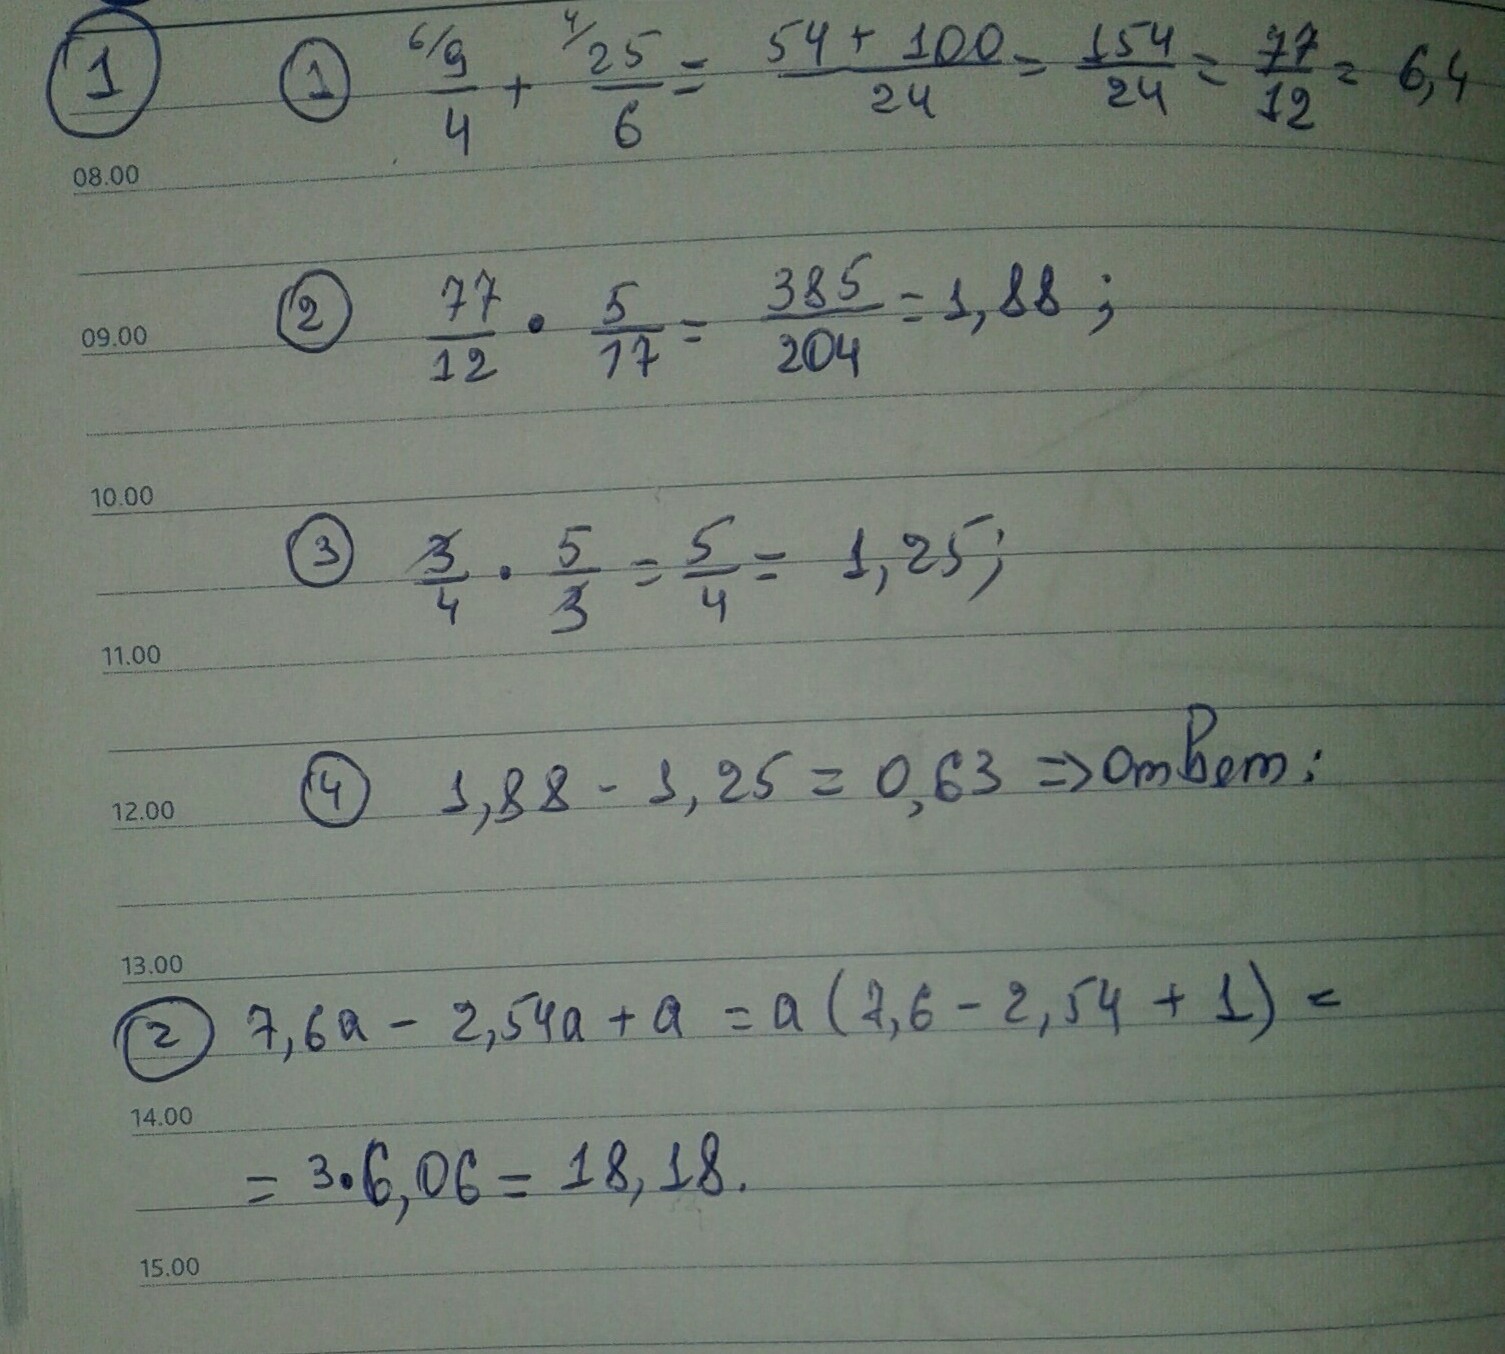 1 1 6/ 9/4 + 4/ 25/6 = 54 + 100/24 = 154/24 = 77/12 = 6,4
08.00
2 77/12 • 5/17 = 385/204 = 1,88 ;
09.00
10.00
3 3/4 . 5/3 = 5/4 = 1,25;
11.00
4 1,88 - 1,25 = 0,63 => Ответ:
12.00
13.00
2 7,6a - 2,54a + a = a (7,6 - 2,54 + 1) =
14.00
= 3•6,06 = 18,18.
15.00